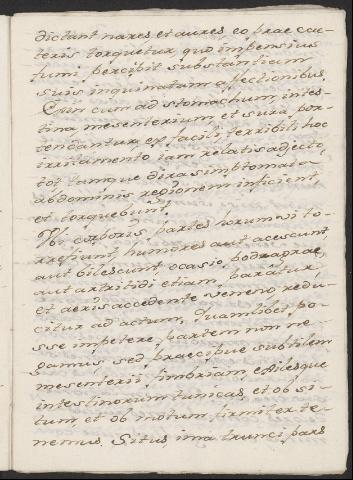 dictant nares et aures eo prae cae-
teris torquetur quo impensius
fumi percibit substantiam
suis inquinatam affectionibus.
cum ad stomachum, intes-
tina mesenterium et sura por-
tendantur ex facili terribili hoc
irritamento iam relatis adjecto,
tot tamque dira simptomata
abdominis regionem inficient,
et torquebunt.
Ubi corporis partes horum si to-
rrefiunt, humores aut acescunt
aut bilescunt, ocasio podragrae,
aut artritidi etiam, paratur,
et aeris accedente veneno redu-
citur ad actum. Quamlibet po-
sse impetere partem non ne-
gamus, sed praecipue subtilem
mesenterii fimbriam, ejusque
intestinorum tunicas, et ob si-
tum, et ob motum firmiter te-
nemus. Situs, ima trunci pars